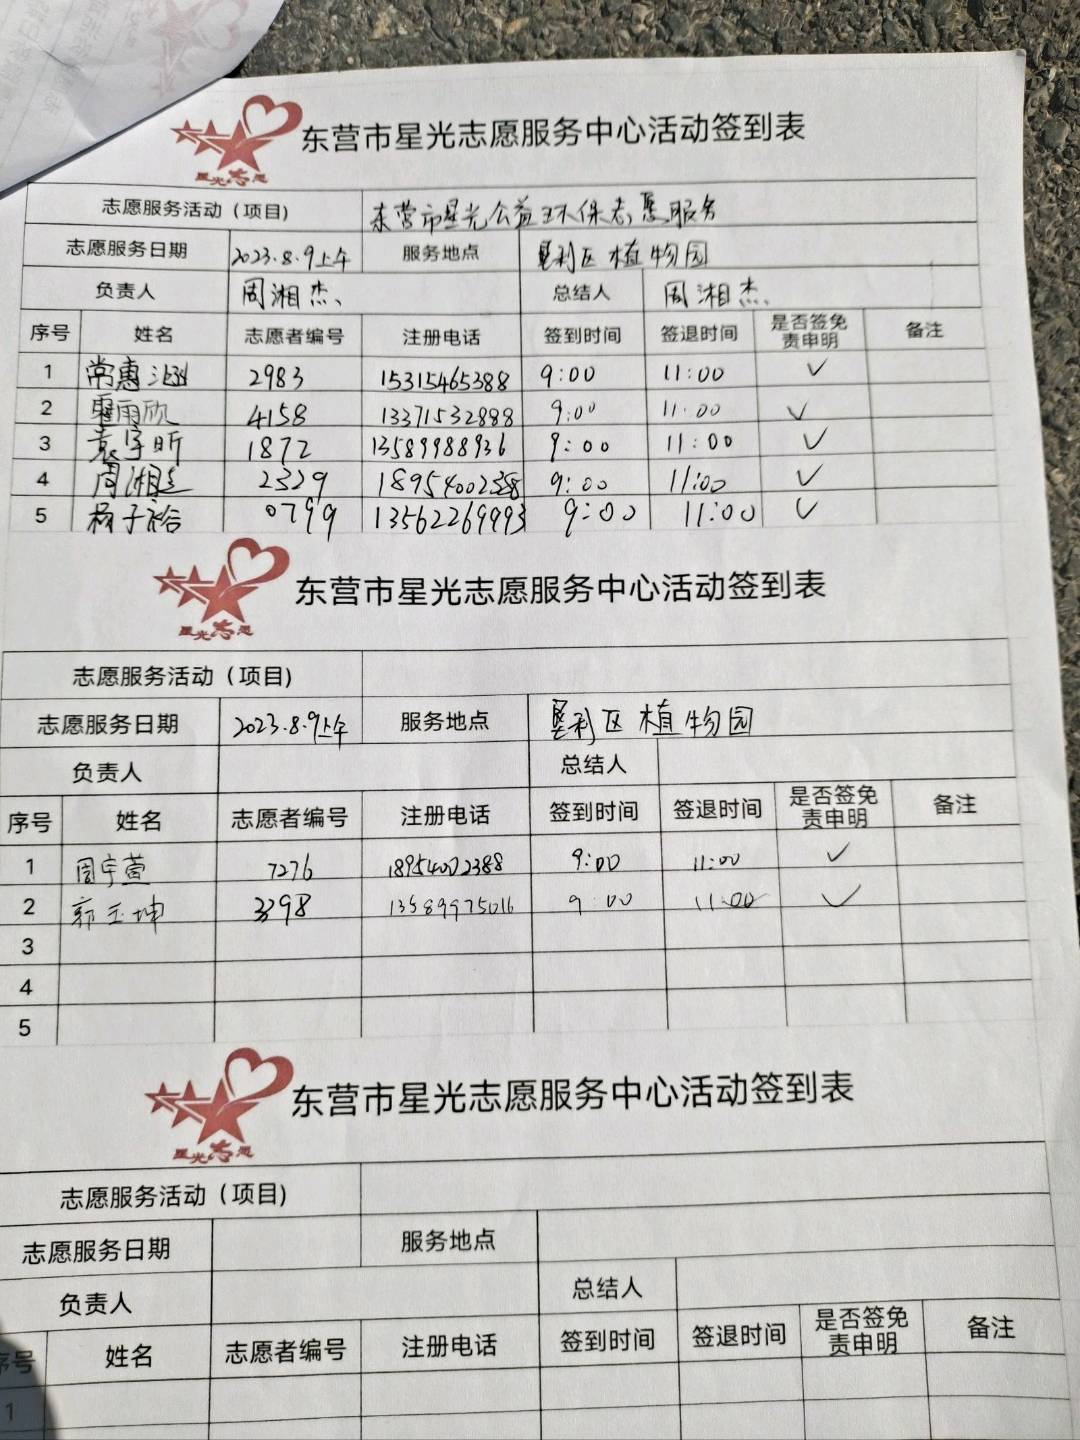 星光志愿
东营市星光志愿服务中心活动签到表
志愿服务活动（项目） 东营市星光公益环保志愿服务
志愿服务日期 2023.8.9上午 服务地点 垦利区植物园
负责人 周湘杰 总结人 周湘杰
序号 姓名 志愿者编号 注册电话 签到时间 签退时间 是否签免责申明 备注
1 常惠 2983 15315465388 9:00 11:00 ✓
2 雨欣 4158 13371532888 9:00 11:00 ✓
3 袁宇昕 1872 13589988936 9:00 11:00 ✓
4 周湘 2329 9:00 11:00 ✓
5 杨子裕 0799 13562269993 9:00 11:00 ✓
星光志愿
东营市星光志愿服务中心活动签到表
志愿服务活动（项目)
志愿服务日期 2023.8.9上午 服务地点 垦利区植物园
负责人 总结人
序号 姓名 志愿者编号 注册电话 签到时间 签退时间 是否签免责申明 备注
1 周宇萱 7276 18954002388 9:00 11:00 ✓
2 郭玉坤 3398 13589975016 9:00 11:00 ✓
3
4
5
星光志愿
东营市星光志愿服务中心活动签到表
志愿服务活动（项目)
志愿服务日期 服务地点
负责人 总结人
序号 姓名 志愿者编号 注册电话 签到时间 签退时间 是否签免责申明 备注
1